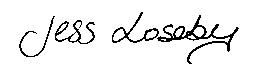 Jess Loseby